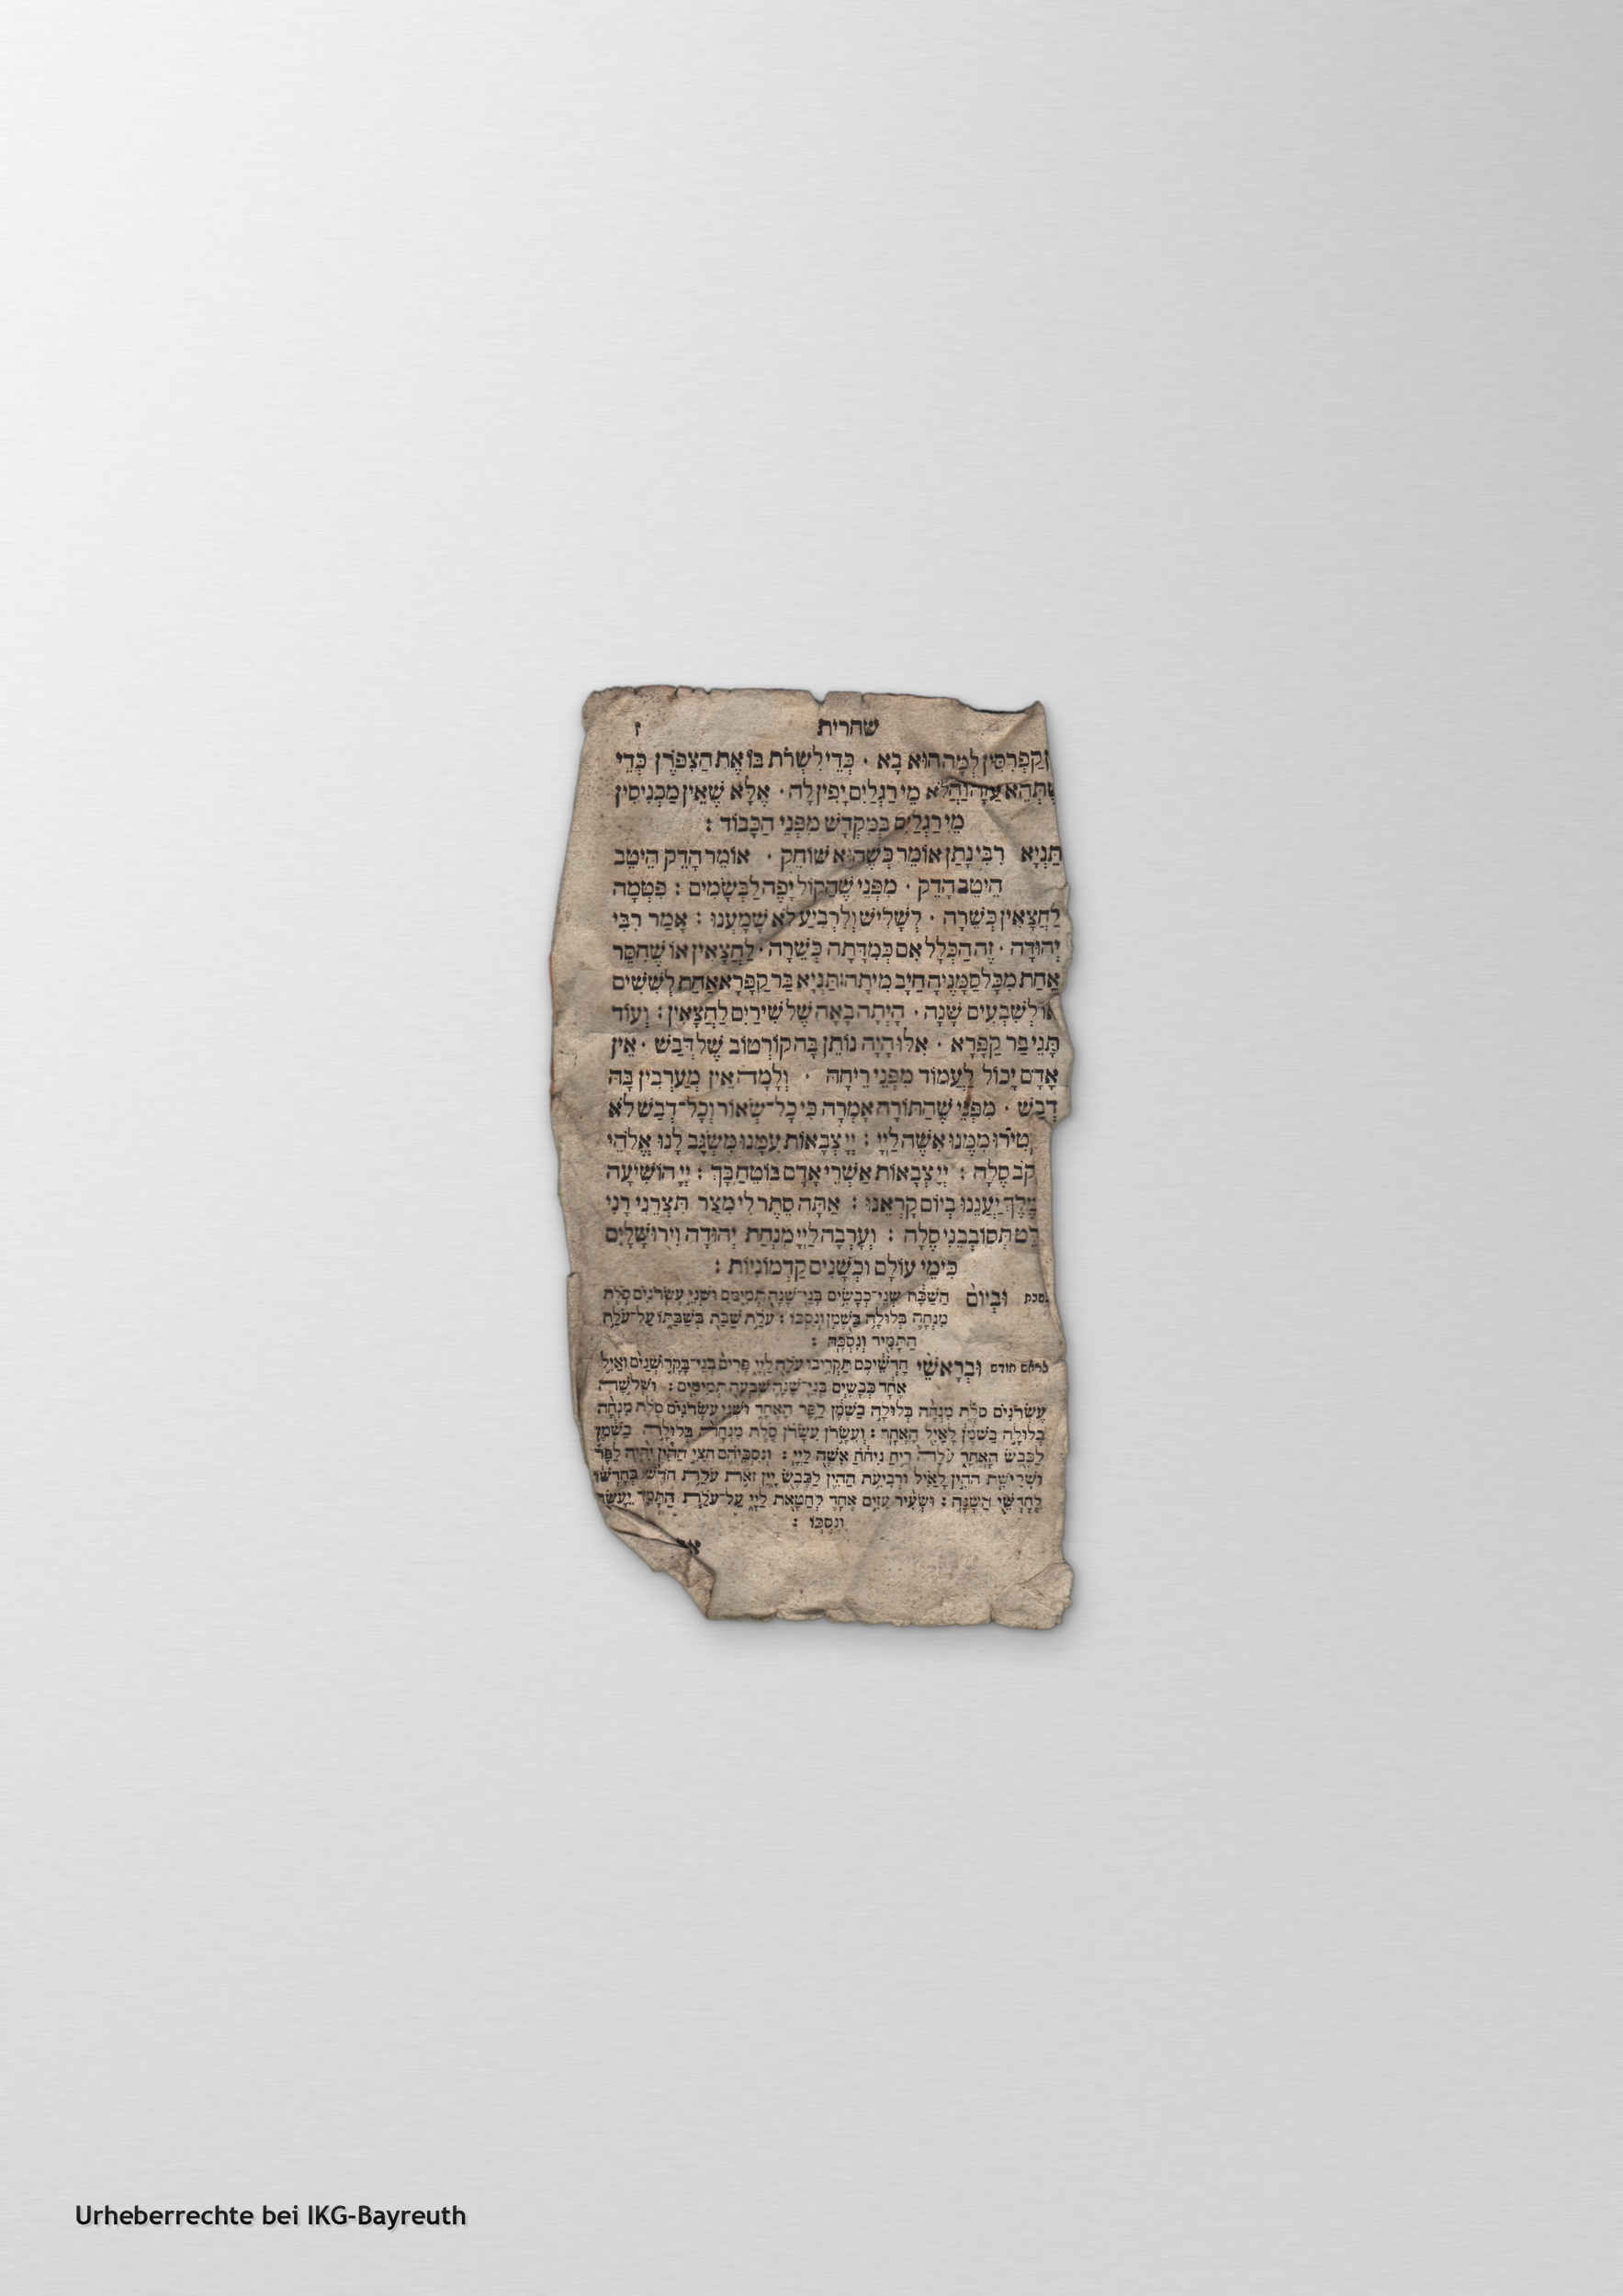 שחרית ז
קַפְרִסִין לְמַה הוּא בָא · כְּדֵי לְשָׁרוֹת בּוֹ אֶת הַצִפֹּרֶן כְּדֵי
שֶׁתְּהֵא עַזָּה וַהֲלֹא מֵי רַגְלַיִם יָפִין לָהּ · אֶלָּא שֶׁאֵין מַכְנִיסִין
מֵי רַגְלַיִם בַּמִּקְדָשׁ מִפְּנֵי הַכָּבוֹד :
תַּנְיָא רַבִּי נָתָן אוֹמֵר כְּשֶׁהוּא שׁוֹחֵק · אוֹמֵר הָדֵק הֵיטֵב
הֵיטֵב הָדֵק · מִפְּנֵי שֶׁהַקּוֹל יָפֶה לַבְּשָׂמִים : פִּטְּמָהּ
לַחֲצָאִין כְּשֵׁרָה · לְשָׁלִישׁ וְלִרְבִיעַ לֹא שָׁמָעְנוּ : אָמַר רַבִּי
יְהוּדָה · זֶה הַכְּלָל אִם כְּמִדָּתָהּ כְּשֵׁרָה · לַחֲצָאִין אוֹ שֶׁחִסֵּר
אַחַת מִכָּל סַמָּנֶיהָ חַיָב מִיתָה : תַּנְיָא בַּר קַפָּרָא אַחַת לְשִׁשִּׁים
אוֹ לְשִׁבְעִים שָׁנָה · הָיְתָה בָאָה שֶׁל שִׁירַיִם לַחֲצָאִין : וְעוֹד
תָּנֵי בַר קַפָּרָא · אִלּוּ הָיָה נוֹתֵן בָּהּ קוֹרְטוֹב שֶׁל דְּבַשׁ · אֵין
אָדָם יָכוֹל לַעֲמוֹד מִפְּנֵי רֵיחָהּ · וְלָמָה אֵין מְעַרְבִין בָּהּ
דְּבַשׁ · מִפְּנֵי שֶׁהַתּוֹרָה אָמְרָה כִּי כָל־שְׂאוֹר וְכָל־דְּבַשׁ לֹא
מִמֶּנּוּ אִשֶּׁה לַיְיָ : יְיָ צְבָאוֹת עִמָּנוּ מִשְׂגָּב לָנוּ אֱלֹהֵי
סֶלָה : יְיָ צְבָאוֹת אַשְׁרֵי אָדָם בּוֹטֵחַ בָּךְ : יְיָ הוֹשִׁיעָה
הַמֶּלֶךְ יַעֲנֵנוּ בְיוֹם קָרְאֵנוּ : אַתָּה סֵתֶר לִי מִצַּר תִּצְּרֵנִי רָנֵּי
תְּסוֹבְבֵנִי סֶלָה : וְעָרְבָה לַיְיָ מִנְחַת יְהוּדָה וִירוּשָׁלָיִם
כִּימֵי עוֹלָם וּכְשָׁנִים קַדְמוֹנִיּוֹת :
וּבְיוֹם הַשַּׁבָּת שְׁנֵי־כְבָשִׂים בְּנֵי־שָׁנָה תְּמִימִם וּשְׁנֵי עֶשְׂרֹנִים סֹלֶת
מִנְחָה בְּלוּלָה בַשֶּׁמֶן וְנִסְכּוֹ : עֹלַת שַׁבַּת בְּשַׁבַּתּוֹ עַל־עֹלַת
הַתָּמִיד וְנִסְכָּהּ :
לראש חודש וּבְרָאשֵׁי חָדְשֵׁיכֶם תַּקְרִיבוּ עֹלָה לַיְיָ פָּרִים בְּנֵי־בָקָר שְׁנַיִם וְאַיִל
אֶחָד כְּבָשִׂים בְּנֵי־שָׁנָה שִׁבְעָה תְּמִימִם : וּשְׁלֹשָׁה
עֶשְׂרֹנִים סֹלֶת מִנְחָה בְּלוּלָה בַשֶּׁמֶן לַפָּר הָאֶחָד וּשְׁנֵי עֶשְׂרֹנִים סֹלֶת מִנְחָה
בְּלוּלָה בַשֶּׁמֶן לָאַיִל הָאֶחָד : וְעִשָּׂרֹן עִשָּׂרֹן סֹלֶת מִנְחָה בְּלוּלָה בַשֶּׁמֶן
לַכֶּבֶשׂ הָאֶחָד עֹלָה רֵיחַ נִיחֹחַ אִשֶּׁה לַיְיָ : וְנִסְכֵּיהֶם חֲצִי הַהִין יִהְיֶה לַפָּר
וּשְׁלִישִׁת הַהִין לָאַיִל וּרְבִיעִת הַהִין לַכֶּבֶשׂ יָיִן זֹאת עֹלַת חֹדֶשׁ בְּחָדְשׁוֹ
לְחָדְשֵׁי הַשָּׁנָה : וּשְׂעִיר עִזִּים אֶחָד לְחַטָּאת לַיְיָ עַל־עֹלַת הַתָּמִד יֵעָשֶׂה
וְנִסְכּוֹ :
Urheberrechte bei IKG-Bayreuth